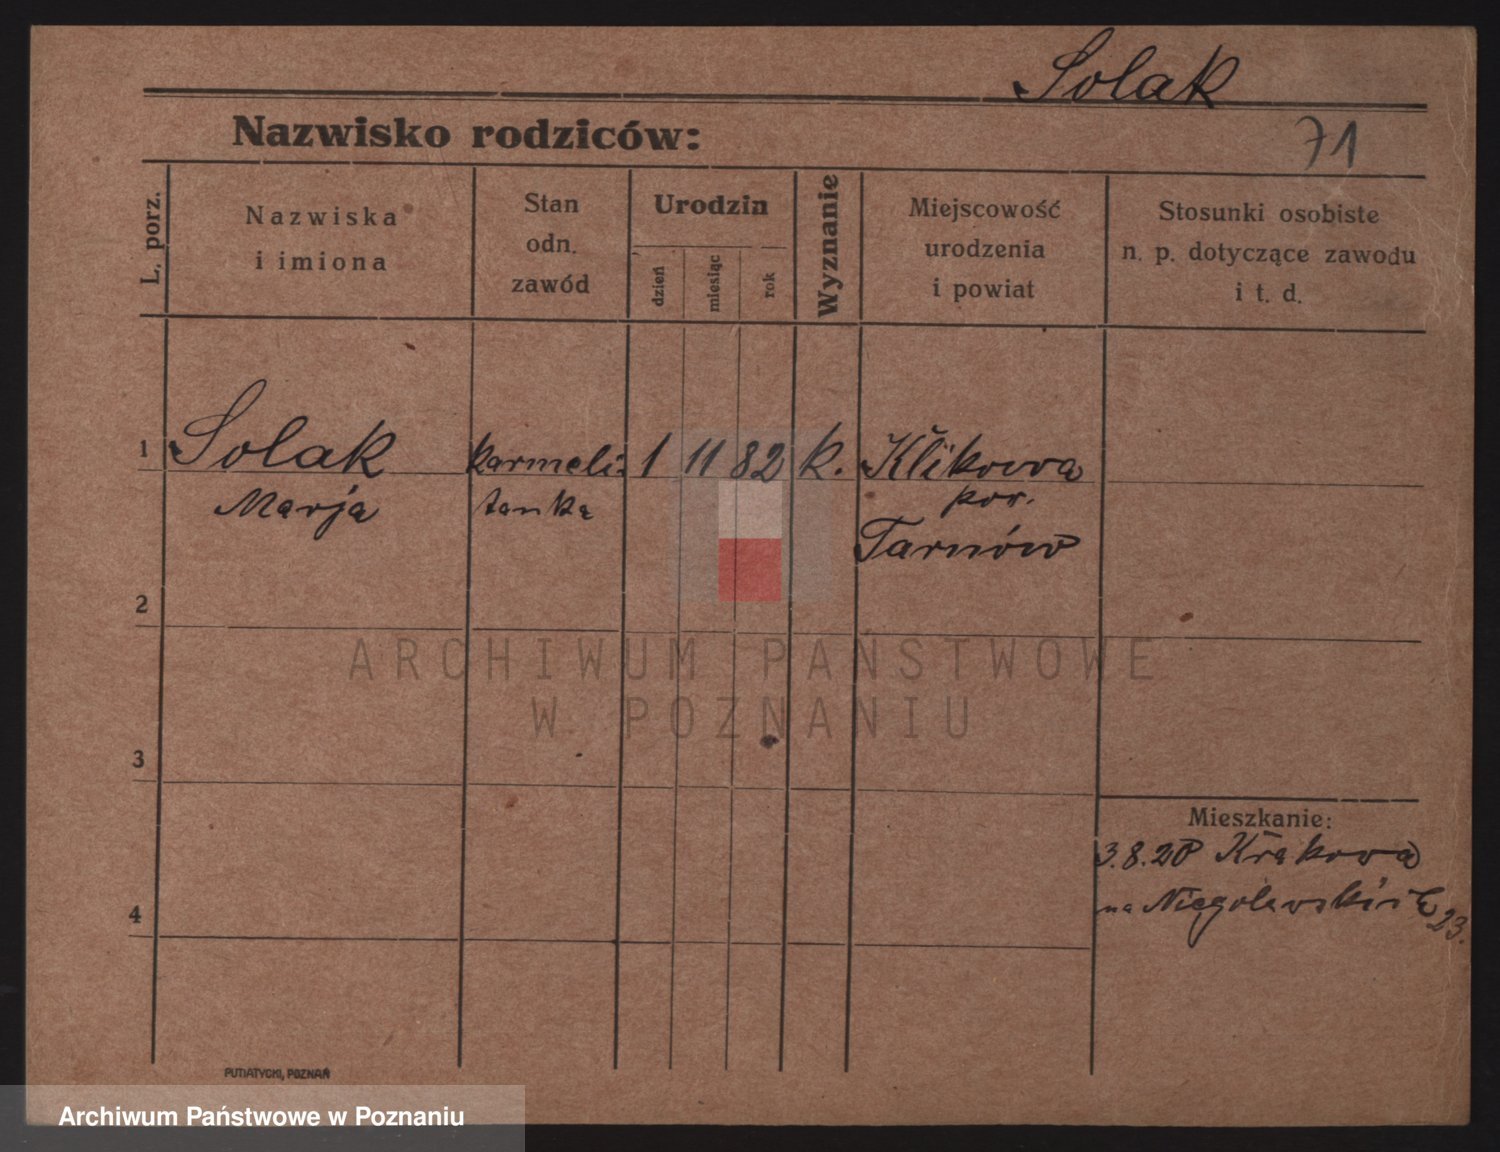 Solak
Nazwisko rodziców:
71
L. porz.
Nazwiska
i imiona
Stan
odn.
zawód
Urodzin
dzień
miesiąc
rok
Wyznanie
Miejscowość
urodzenia
i powiat
Stosunki osobiste
n. p. dotyczące zawodu
i t. d.
1 Solak karmeli- 1 11 82 k. Klikowa
Marja tanka pow.
Tarnów
2
ARCHIWUM PAŃSTWOWE
W POZNANIU
3
Mieszkanie:
3.8.20 Krakowa
4
na Niegolewskich 23.
PUTIATYCKI, POZNAŃ
Archiwum Państwowe w Poznaniu